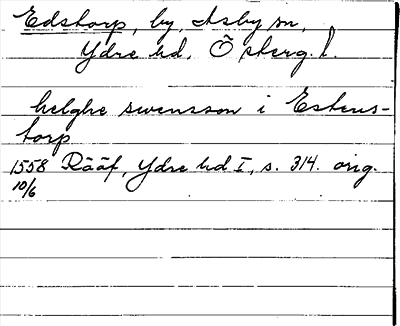 Edstorp, by, Asby sn,
Ydre hd, Österg. l.
helghe swensson i Estens-
torp
1558 Rääf, Ydre hd I, s. 314. orig.
10/6